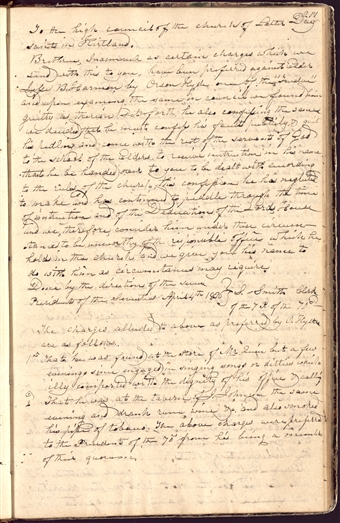 To the high council of the church of Latter Day
saints in Kirtland.
Brethren, Inasmuch as certain charges which we
send with this to you, have been prefered against Elder
Jesse B. Harmon by Orson Hyde one of the
and upon examining the same in council we found him
guilty as therein Set forth he also confessing the same
we decided that he must confess his faults
his and come with the rest of the servants of God
to the school of the elders, to receive instruction in his name
that he be handed over to you to be dealt with according
to the rules of the church, This confession he has neglected
to make and has continued to through the time
of instruction and of the Dedication of the Lord's House
and we, therefore, consider him under these circum-
stances to be unworthy of the responsible office which he
holds in the church and we give you his name to
do with him as circumstances may require
Done by the direction of the seven
Presidents of the seventies April 4th 1836 Smith Clerk
of the 7 P. of the 70
The charges alluded to above as prefered by O. Hyde
are as follows.
1st That he was found at the store of Mr. but a few
evenings since engaged in singing songs or ditties which
illy comported with the dignity of his office & calling
2 That he was at the tavern of Johnson the same
evening and drank rum, wine &c and also smoked
his pipe of tobaco. The above charges were prefered
to the Presidents of the 70s from his being a member
of their quorum.